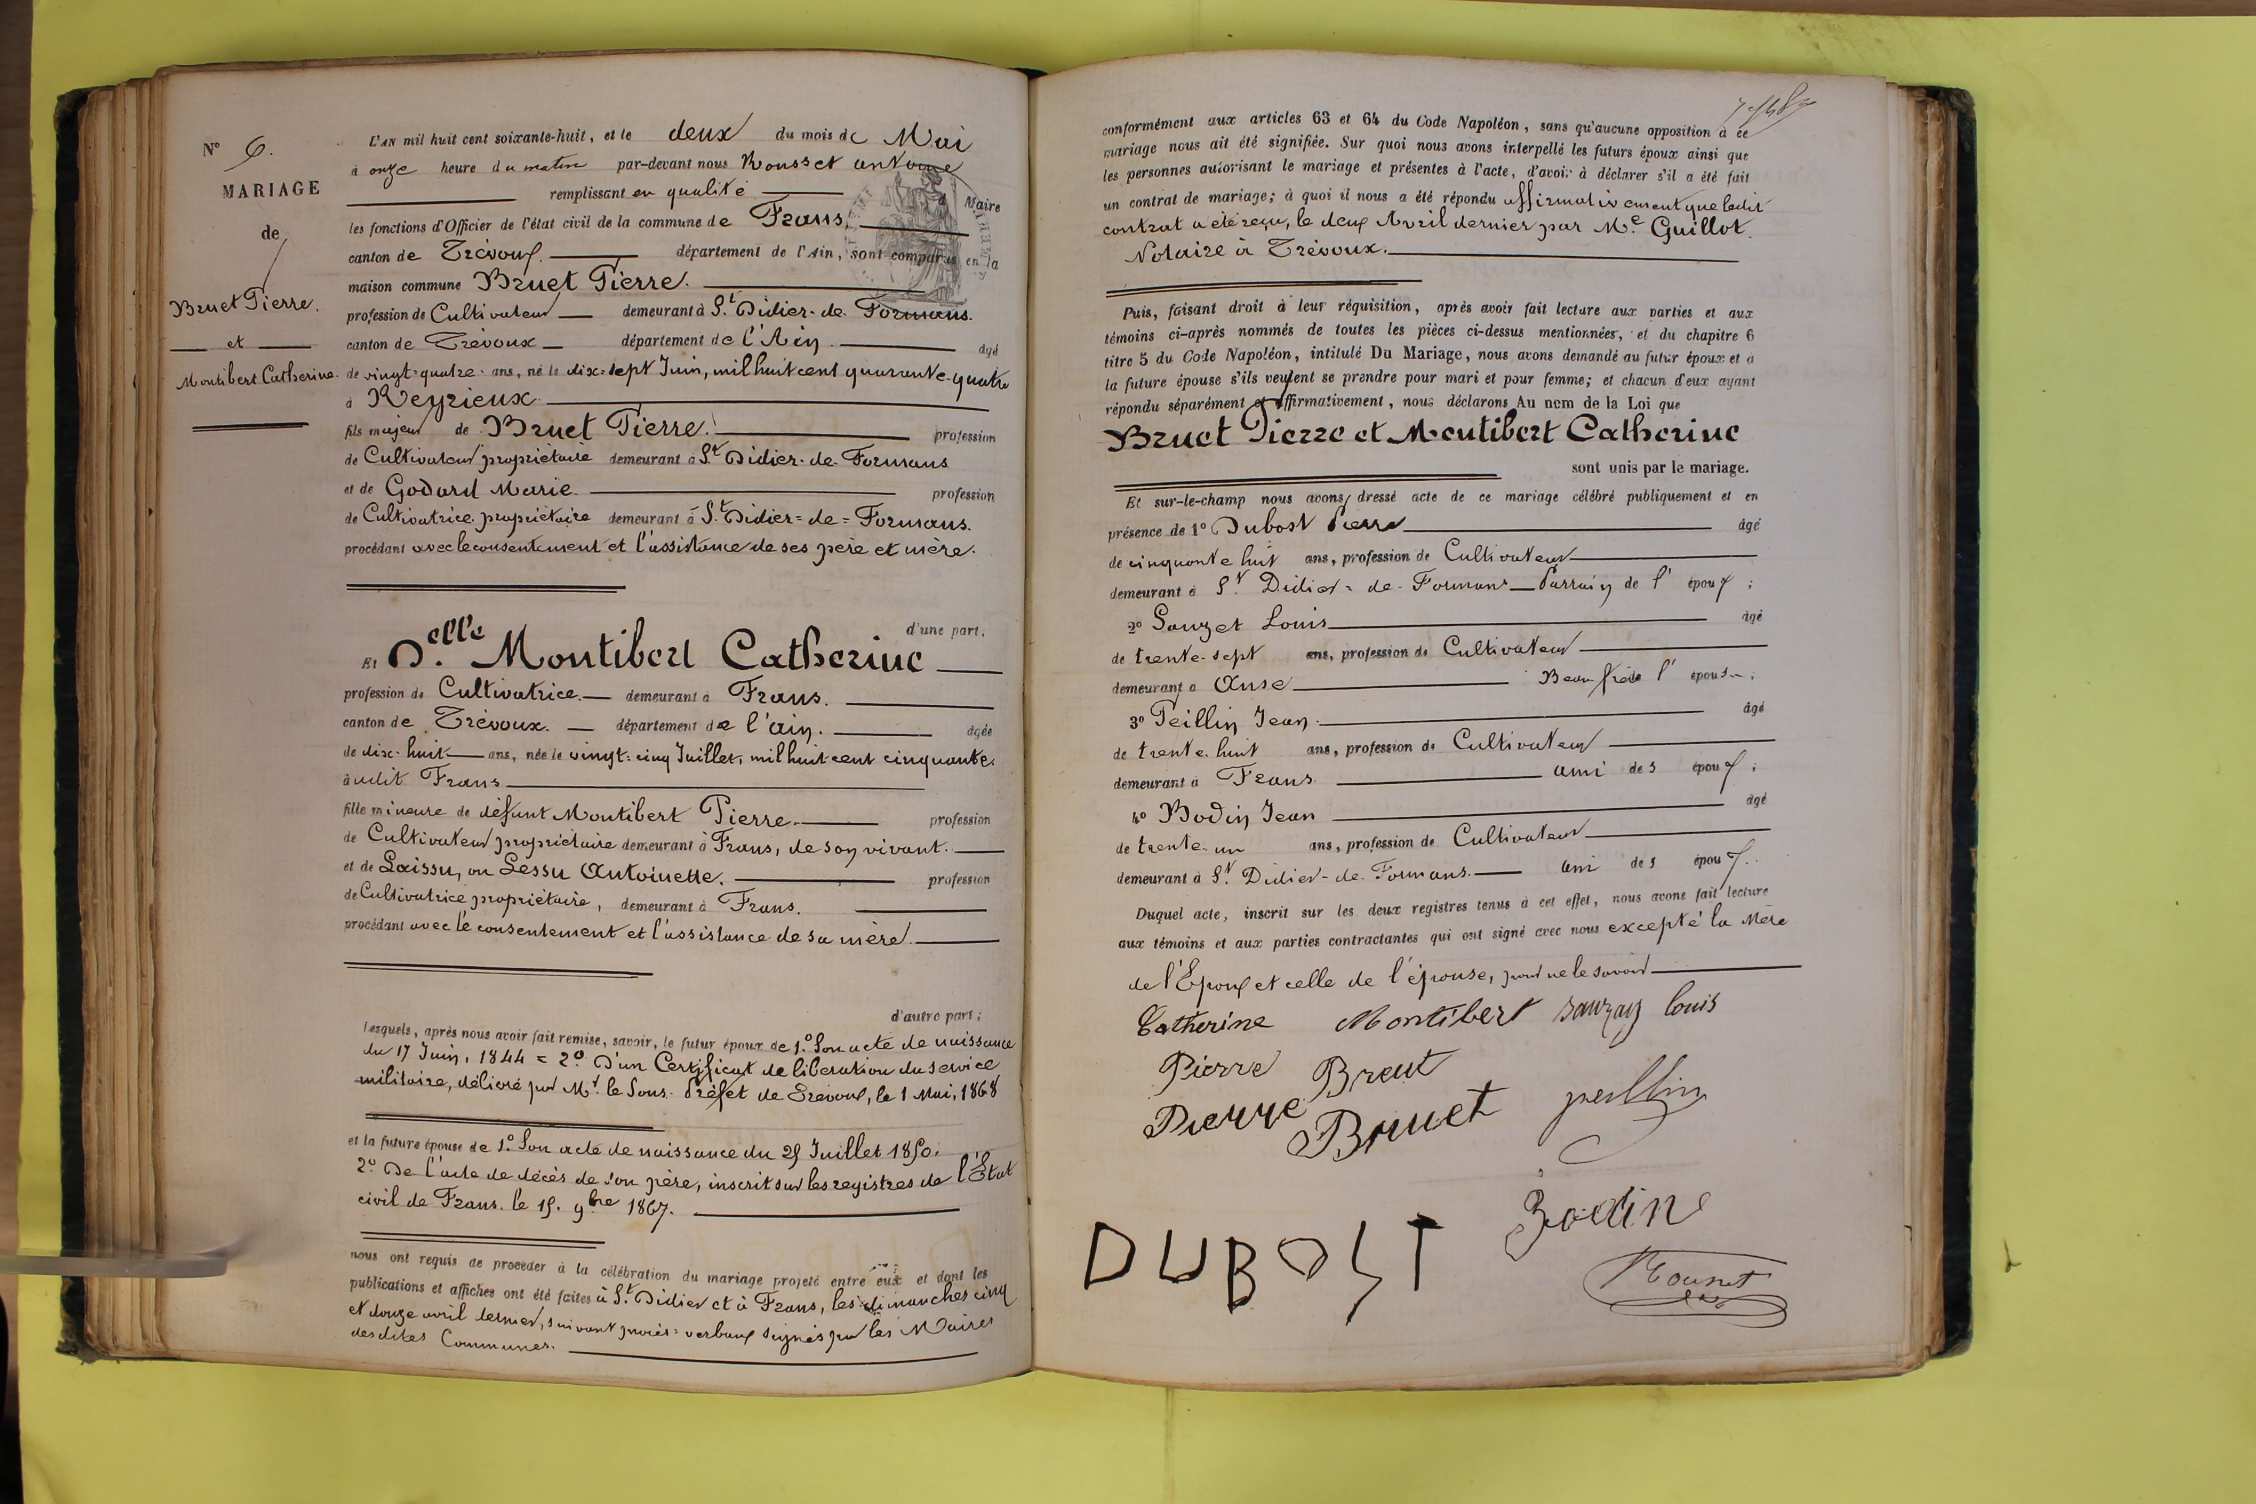 N° 6.
MARIAGE
de
Bruet Pierre.
et
Montibert Catherine.
L'AN mil huit cent soixante-huit, et le deux du mois de Mai
à onze heure du matin par-devant nous Rousset antoine
remplissant en qualité Maire
les fonctions d'Officier de l'état civil de la commune de Frans,
canton de Trévoux. département de l'Ain, sont comparus en la
maison commune Bruet Pierre.
profession de Cultivateur demeurant à St Didier-de-Formans.
canton de Trévoux département de l'Ain. âgé
de vingt-quatre ans, né le dix-sept Juin, mil huit cent quarante-quatre
à Reyrieux
fils majeur de Bruet Pierre. profession
de Cultivateur propriétaire demeurant à St Didier-de-Formans
et de Godard Marie. profession
de Cultivatrice propriétaire demeurant à St Didier=de=Formans.
procédant avec le consentement et l'assistance de ses père et mère.
d'une part;
Et D.elle Montibert Catherine
profession de Cultivatrice. demeurant à Frans.
canton de Trévoux. département de l'ain. âgée
de dix-huit ans, née le vingt-cinq Juillet, mil huit cent cinquante.
à udit Frans
fille mineure de défunt Montibert Pierre. profession
de Cultivateur propriétaire demeurant à Frans, de son vivant.
et de Laissu, ou Lessu Antoinette. profession
de Cultivatrice propriétaire, demeurant à Frans.
procédant avec le consentement et l'assistance de sa mère.
d'autre part;
Lesquels, après nous avoir fait remise, savoir, le futur époux de 1.° Son acte de naissance
du 17 Juin, 1844 = 2.° D'un Certificat de libération du service
militaire, délivré par Mr. le Sous-Préfet de Trévoux, le 1 Mai, 1868
et la future épouse de 1.° Son acte de naissance du 25 Juillet 1850.
2.° De l'acte de décès de son père, inscrit sur les registres de l'État
civil de Frans. le 15. 9bre 1867.
nous ont requis de procéder à la célébration du mariage projeté entre eux et dont les
publications et affiches ont été faites à St. Didier et à Frans, les dimanches cinq
et douze avril dernier, suivant procès-verbaux signés par les Maires
desdites Communes.
conformément aux articles 63 et 64 du Code Napoléon, sans qu'aucune opposition à ce
mariage nous ait été signifiée. Sur quoi nous avons interpellé les futurs époux ainsi que
les personnes autorisant le mariage et présentes à l'acte, d'avoir à déclarer s'il a été fait
un contrat de mariage; à quoi il nous a été répondu affirmativement que ledit
contrat a été reçu, le deux Avril dernier par Me Guillot.
Notaire à Trévoux.
Puis, faisant droit à leur réquisition, après avoir fait lecture aux parties et aux
témoins ci-après nommés de toutes les pièces ci-dessus mentionnées, et du chapitre 6
titre 5 du Code Napoléon, intitulé Du Mariage, nous avons demandé au futur époux et à
la future épouse s'ils veulent se prendre pour mari et pour femme; et chacun d'eux ayant
répondu séparément et affirmativement, nous déclarons Au nom de la Loi que
Bruet Pierre et Montibert Catherine
sont unis par le mariage.
Et sur-le-champ nous avons dressé acte de ce mariage célébré publiquement et en
présence de 1° Dubost Pierre âgé
de cinquante huit ans, profession de Cultivateur
demeurant à St. Didier-de-Formans Parrain de l'époux;
2° Sauzet Louis âgé
de trente-sept ans, profession de Cultivateur
demeurant à Anse Beau frère l'épouse;
3° Peillin Jean. âgé
de trente-huit ans, profession de Cultivateur
demeurant à Frans ami des époux;
4° Bodin Jean âgé
de trente-un ans, profession de Cultivateur
demeurant à St. Didier-de-Formans. ami des époux.
Duquel acte, inscrit sur les deux registres tenus à cet effet, nous avons fait lecture
aux témoins et aux parties contractantes qui ont signé avec nous excepté la Mère
de l'Epoux et celle de l'épouse, pour ne le savoir
Catherine Montibert sauzay louis
Pierre Breut
Pierre Bruet peillin
Bodin
DUBOST
Rousset